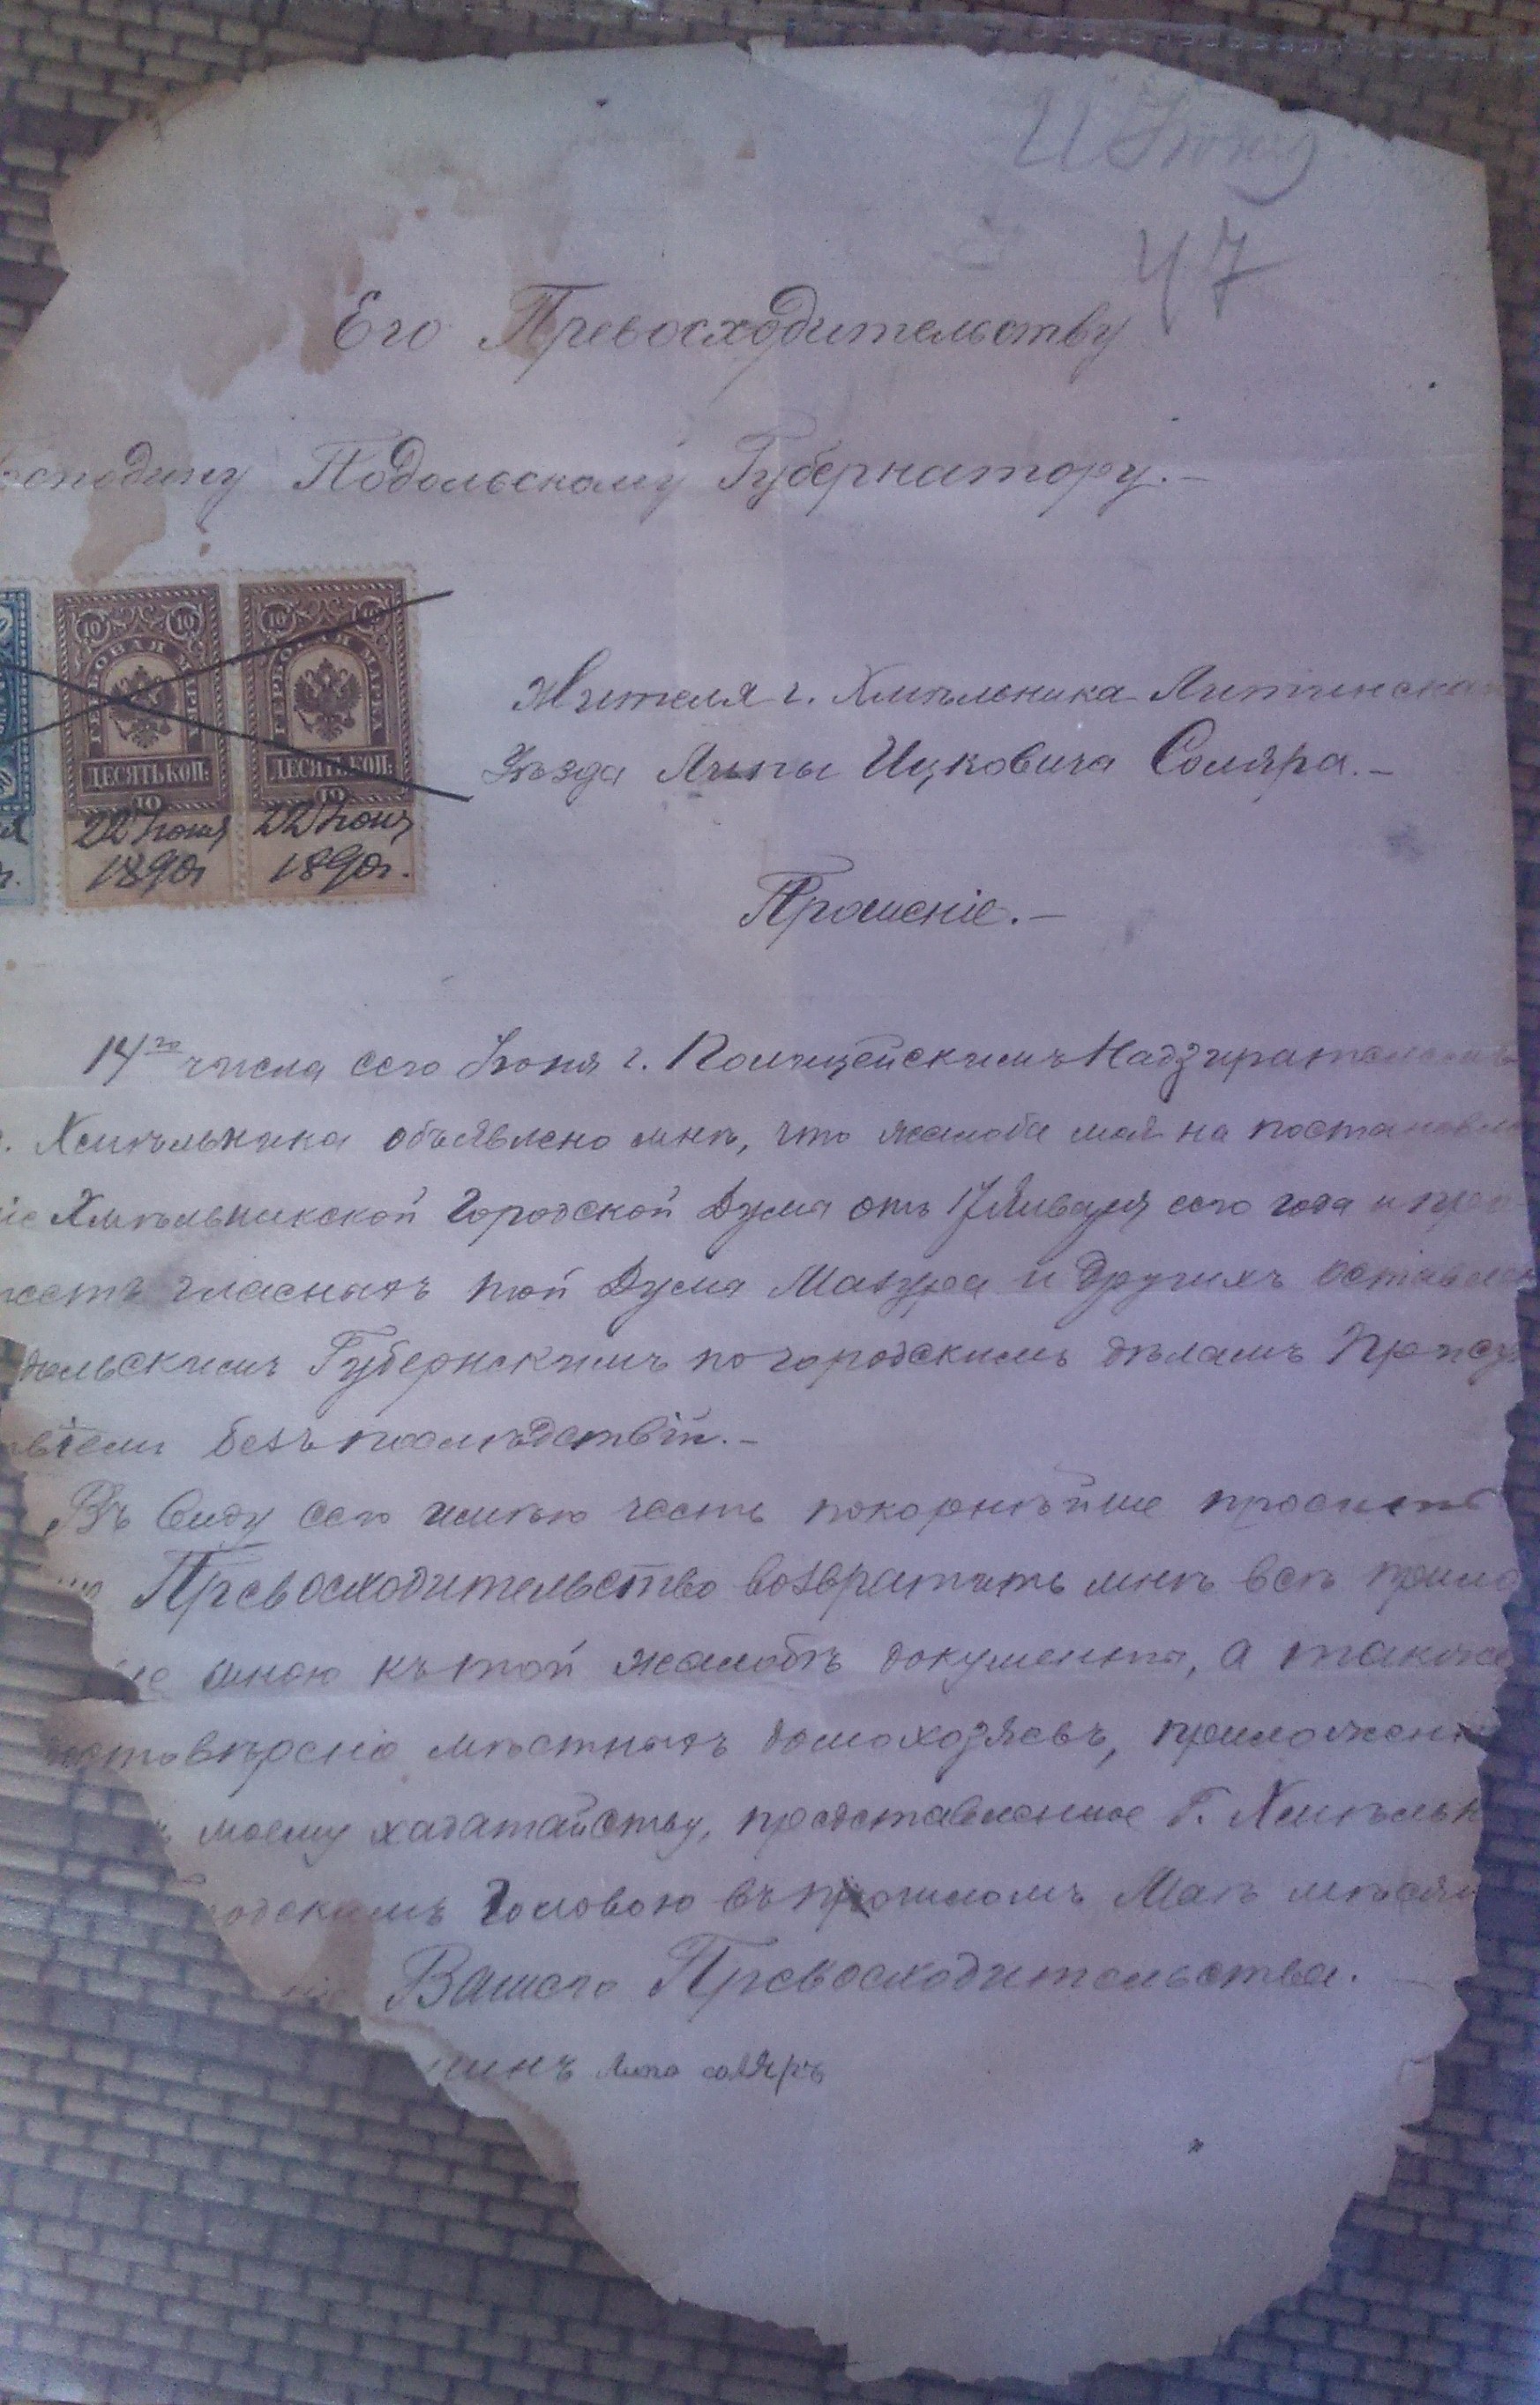 47
Его Превосходительству
Господину Подольскому Губернатору. —
10 10
ГЕРБОВАЯ МАРКА
ДЕСЯТЬ КОП:
10
22 Іюня
1890 г
10 10
ГЕРБОВАЯ МАРКА
ДЕСЯТЬ КОП:
10
22 Іюня
1890 г.
Жителя г. Хмѣльника Литинска
Уѣзда Липы Ицковича Соляра. —
Прошеніе. —
14го числа сего Іюня г. Полицейскимъ Надзирателемъ
г. Хмѣльника объявлено мнѣ, что жалоба моя на постановле
іе Хмѣльникской Городской Думы отъ 17 Января сего года и
гласныхъ той Думы Мазура и другихъ оставле
дольскимъ Губернскимъ по городскимъ дѣламъ Присут
віемъ безъ послѣдствій. —
Въ виду сего имѣю честь покорнѣйше просить
Превосходительство возвратить мнѣ всѣ прило
ые мною къ той жалобѣ документы, а также
вѣреніе мѣстныхъ домохозяевъ, приложен
моему хадатайству, представленное Г. Хмѣльн
родскимъ Головою въ прошломъ Маѣ мѣсяц
Вашего Превосходительства. —
нинъ Липа солярѣ